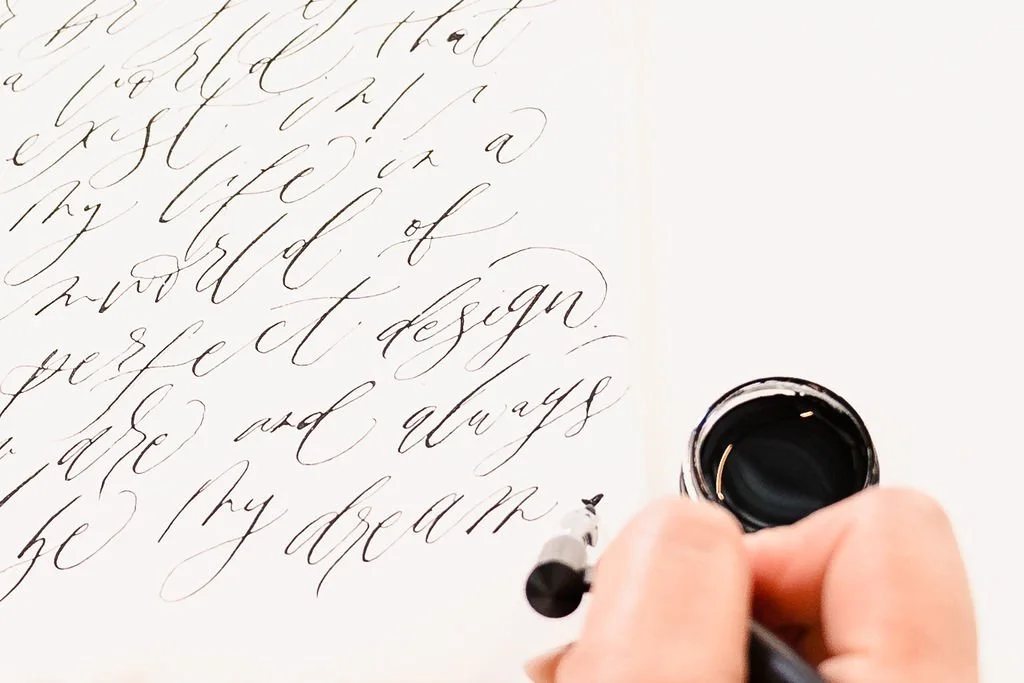 a world that
exist in
my life in a
world of
perfect design.
are and always
be my dream